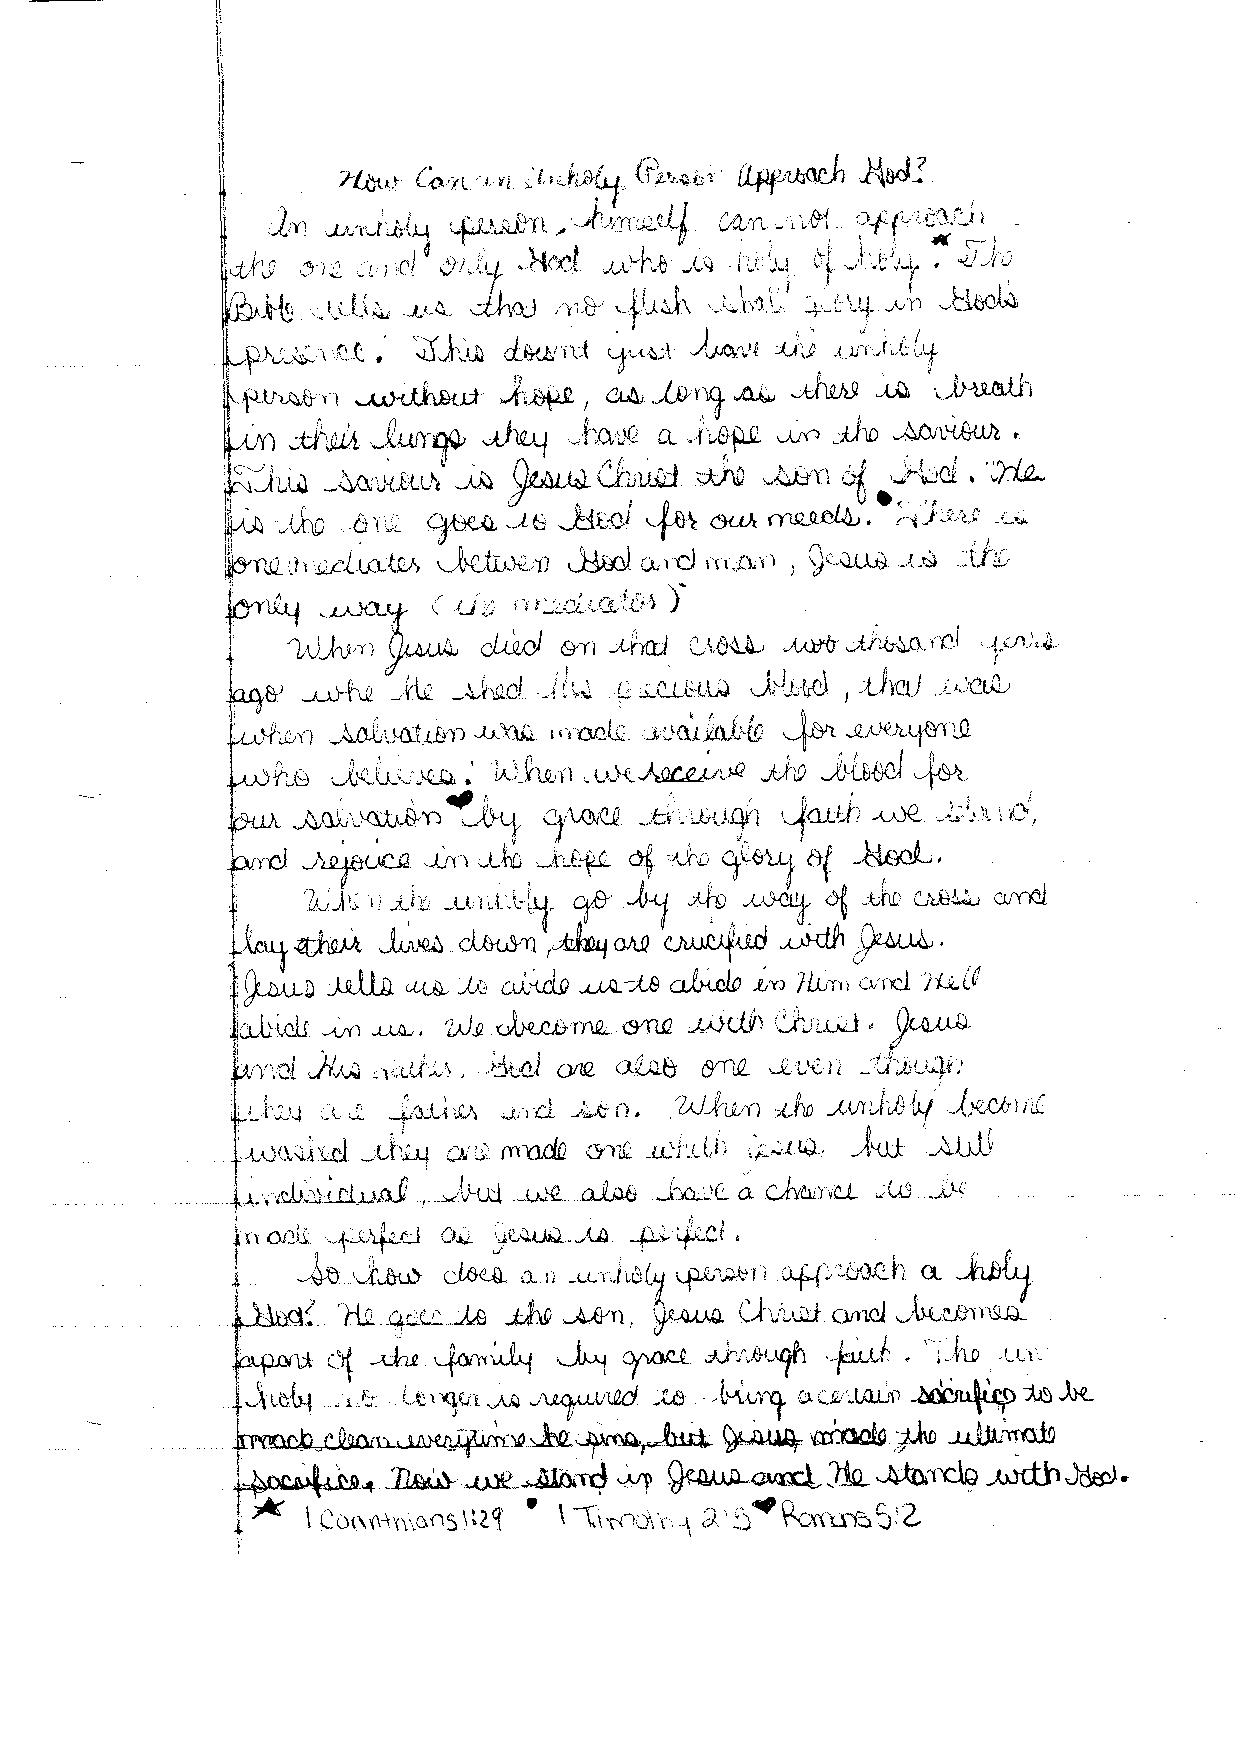 How Can an Unholy Person Approach God?
An unholy person, himself can not approach
the one and only God who is holy of holy.★ The
Bible tells us that no flesh shall glory in God's
presence. This doesn't just leave the unholy
person without hope, as long as there is breath
in their lungs they have a hope in the saviour.
This saviour is Jesus Christ the son of God. He
is the one goes to God for our needs.● There is
one mediates between God and man, Jesus is the
only way (the mediator)
When Jesus died on that cross two thousand years
ago whe He shed His precious blood, that was
when salvation was made available for everyone
who believes. When we receive the blood for
our salvation ♥by grace through faith we stand,
and rejoice in the hope of the glory of God.
When the unholy go by the way of the cross and
lay their lives down, they are crucified with Jesus.
Jesus tells us to abide us to abide in Him and He'll
abide in us. We become one with Christ. Jesus
and His father, God are also one even though
they are father and son. When the unholy become
washed they are made one whith Jesus but still
individual, but we also have a chance to be
made perfect as Jesus is perfect.
So how does an unholy person approach a holy
God? He goes to the son, Jesus Christ and becomes
apart of the family by grace through faith. The un
holy no longer is required to bring a certain sacrifice to be
made clean everytime he sins, but Jesus made the ultimate
sacrifice. Now we stand in Jesus and He stands with God.
★ 1 Corinthians 1:29 ● 1 Timothy 2:5 ♥ Romans 5:2